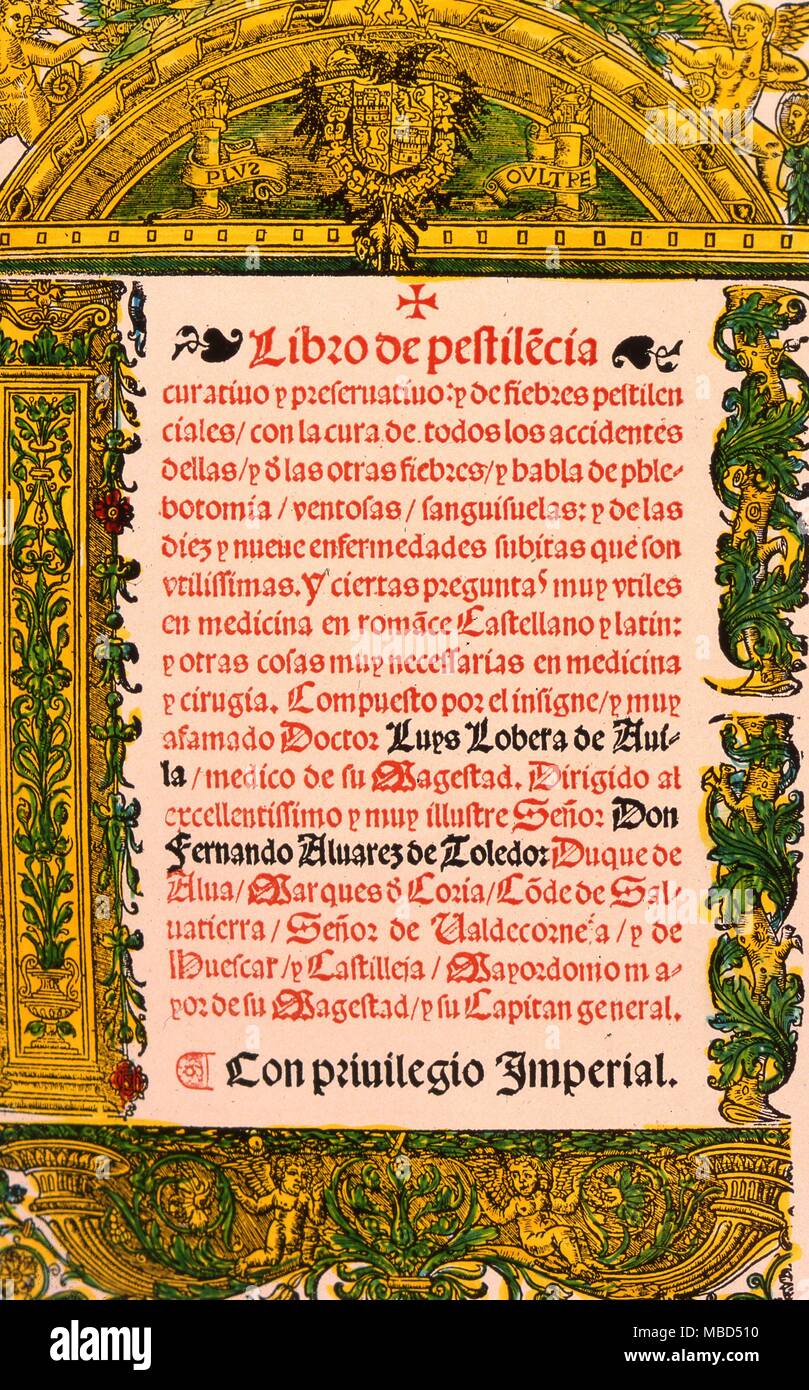 PLVS
OVLTRE
Libro de pestilẽcia
curatiuo y preseruatiuo: y de fiebres pestilen
ciales / con la cura de todos los accidentes
dellas / y đ las otras fiebres / y habla de phle-
botomia / ventosas / sanguisuelas: y de las
diez y nueue enfermedades subitas que son
vtilissimas. Y ciertas preguntas muy vtiles
en medicina en romãce Castellano y latin:
y otras cosas muy necessarias en medicina
y cirugia. Compuesto por el insigne / y muy
afamado Doctor Luys Lobera de Aui-
la / medico de su Magestad. Dirigido al
excellentissimo y muy illustre Señor Don
Fernando Aluarez de Toledo: Duque de
Alua / Marques đ Coria / Cõde de Sal-
uatierra / Señor de Ualdecorneia / y de
Huescar / y Castilleja / Mayordomo ma-
yor de su Magestad / y su Capitan general.
Con priuilegio Imperial.
alamy
Image ID: MBD510
www.alamy.com